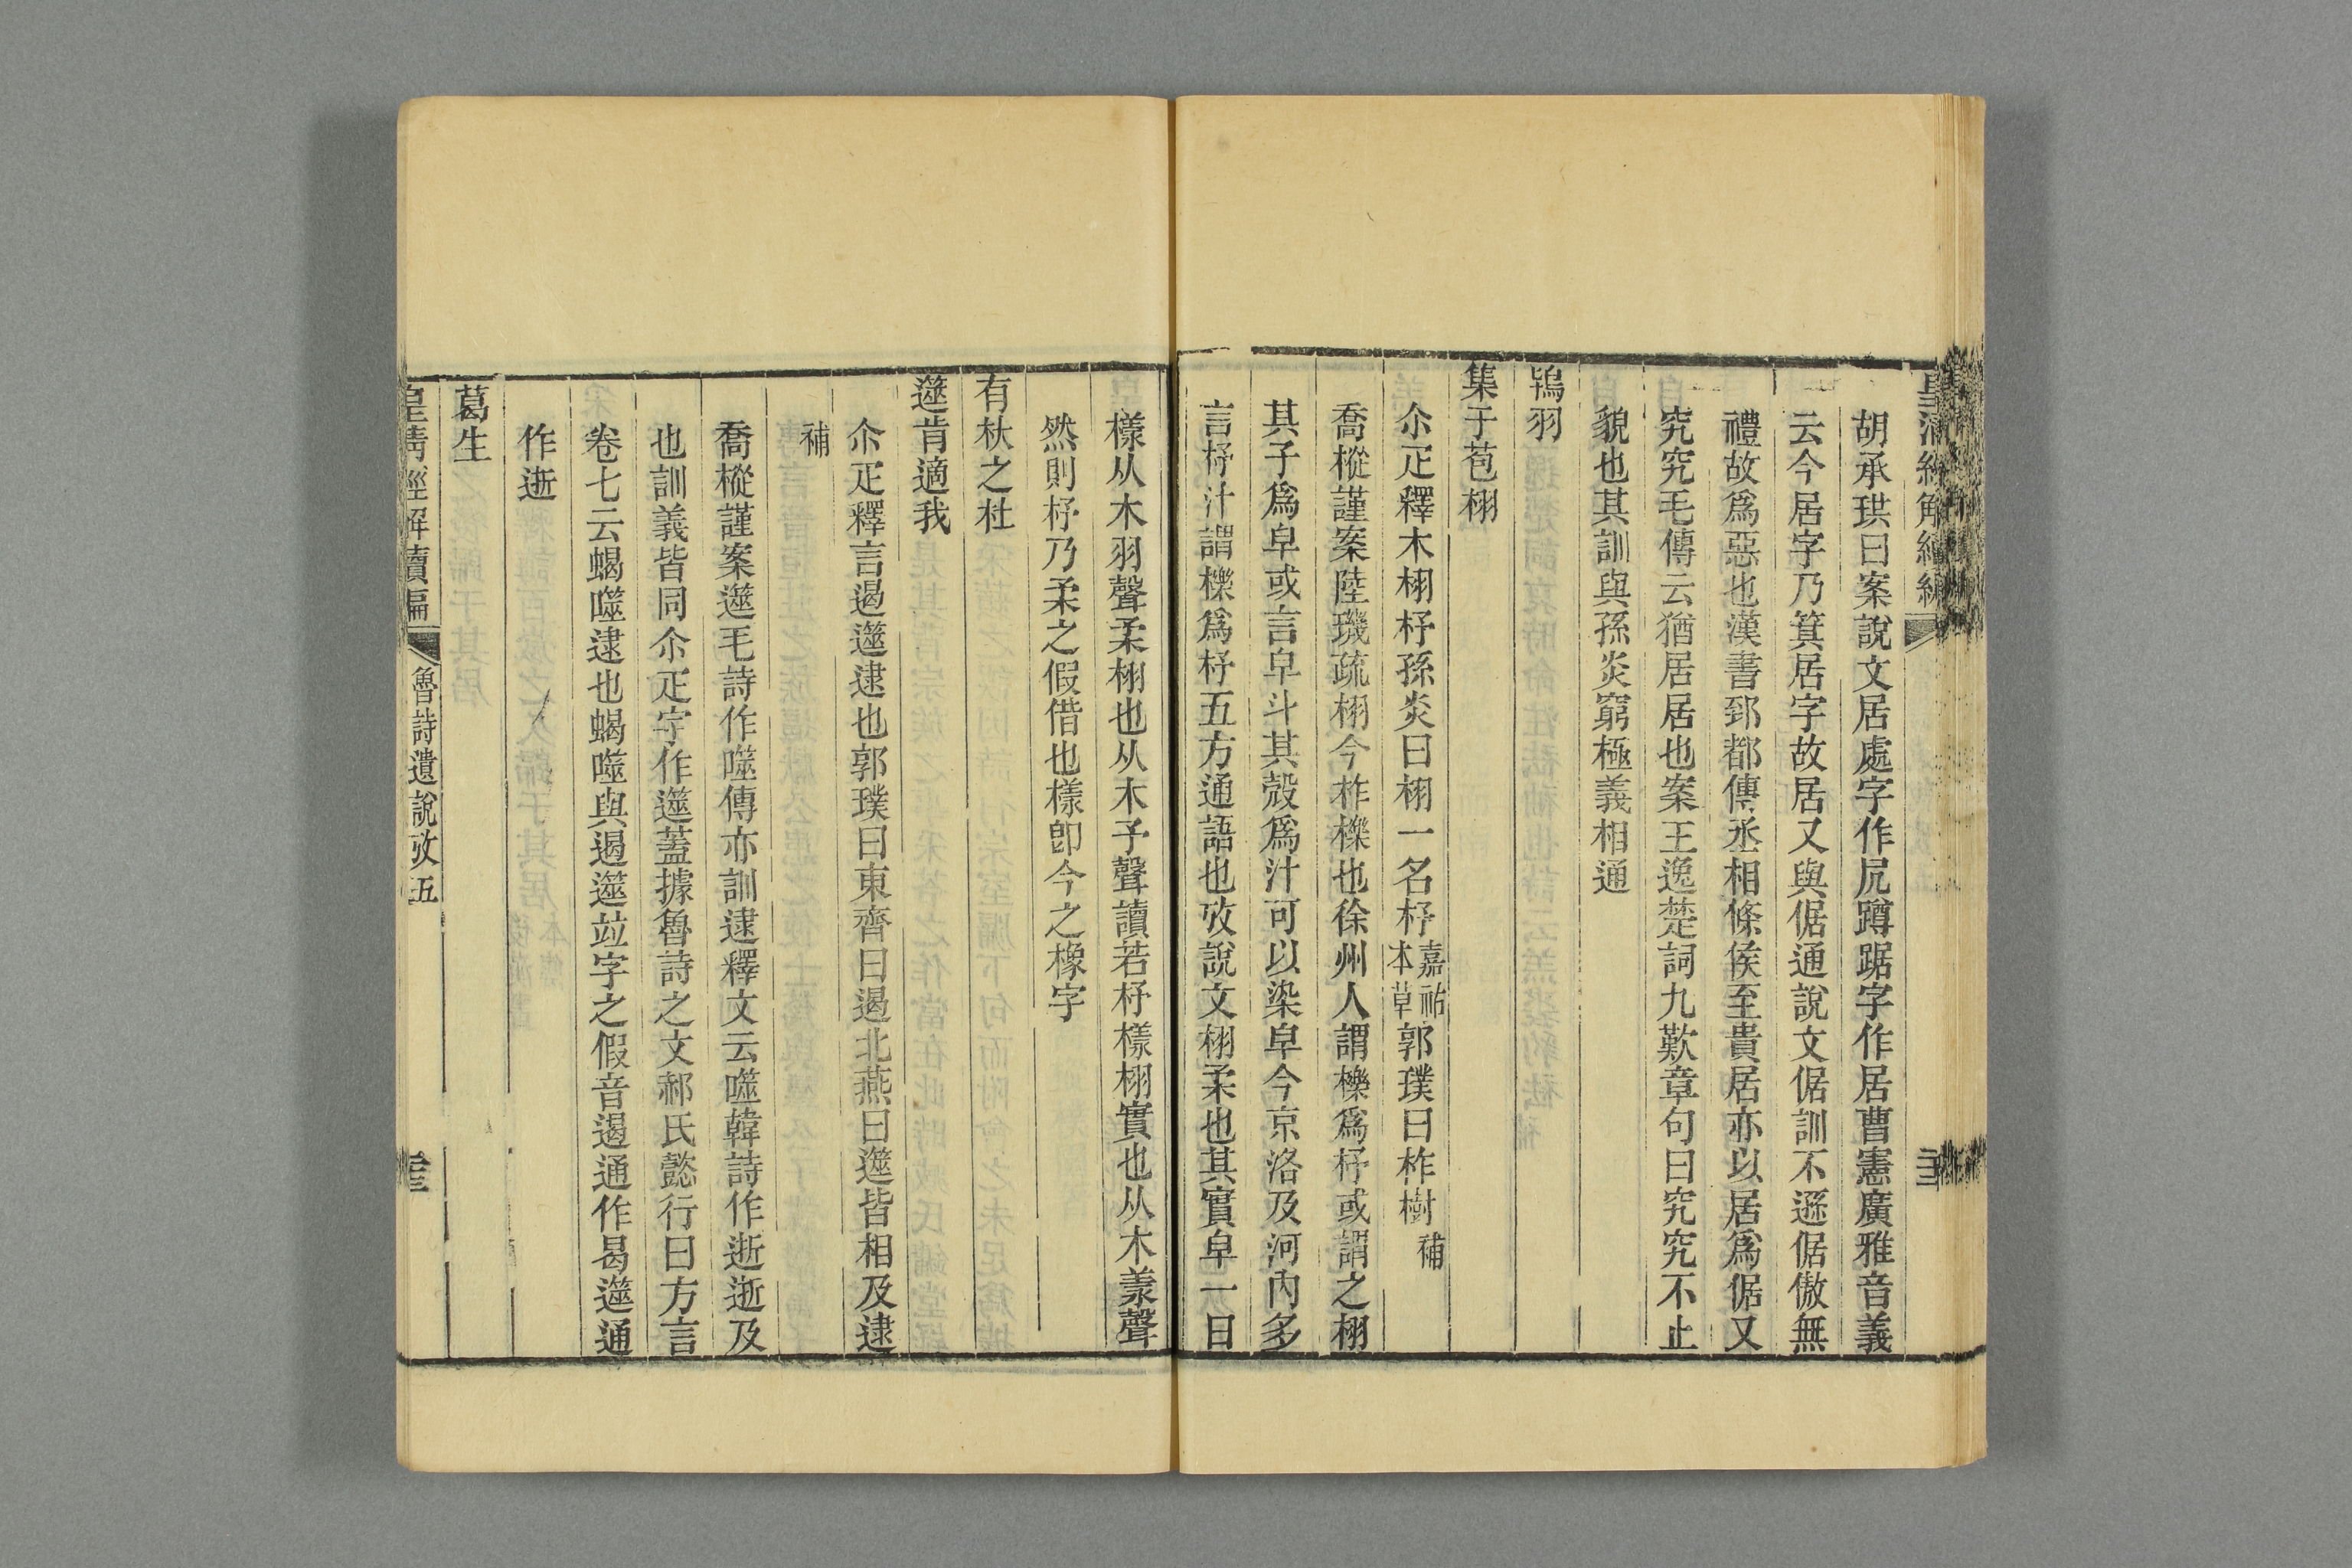 胡承珙曰案說文居處字作凥蹲踞字作居曹憲廣雅音義
云今居字乃箕居字故居又與倨通說文倨訓不遜倨傲無
禮故爲惡也漢書郅都傳丞相條侯至貴居亦以居爲倨又
究究毛傳云猶居居也案王逸楚詞九歎章句曰究究不止
貌也其訓與孫炎窮極義相通
鴇羽
集于苞栩
尒疋釋木栩杼孫炎曰栩一名杼嘉祐本草郭璞曰柞樹補
喬樅謹案陸璣疏栩今柞櫟也徐州人謂櫟爲杼或謂之栩
其子爲皁或言皁斗其殼爲汁可以染皁今京洛及河內多
言杼汁謂櫟爲杼五方通語也攷說文栩柔也其實皁一曰
樣从木羽聲柔栩也从木予聲讀若杼樣栩實也从木羕聲
然則杼乃柔之假借也樣卽今之橡字
有杕之杜
遾肯適我
尒疋釋言遏遾逮也郭璞曰東齊曰遏北燕曰遾皆相及逮
補
喬樅謹案遾毛詩作噬傳亦訓逮釋文云噬韓詩作逝逝及
也訓義皆同尒疋字作遾蓋據魯詩之文郝氏懿行曰方言
卷七云蝎噬逮也蝎噬與遏遾竝字之假音遏通作曷遾通
作逝
葛生
皇淸經解續編
魯詩遺說攷五